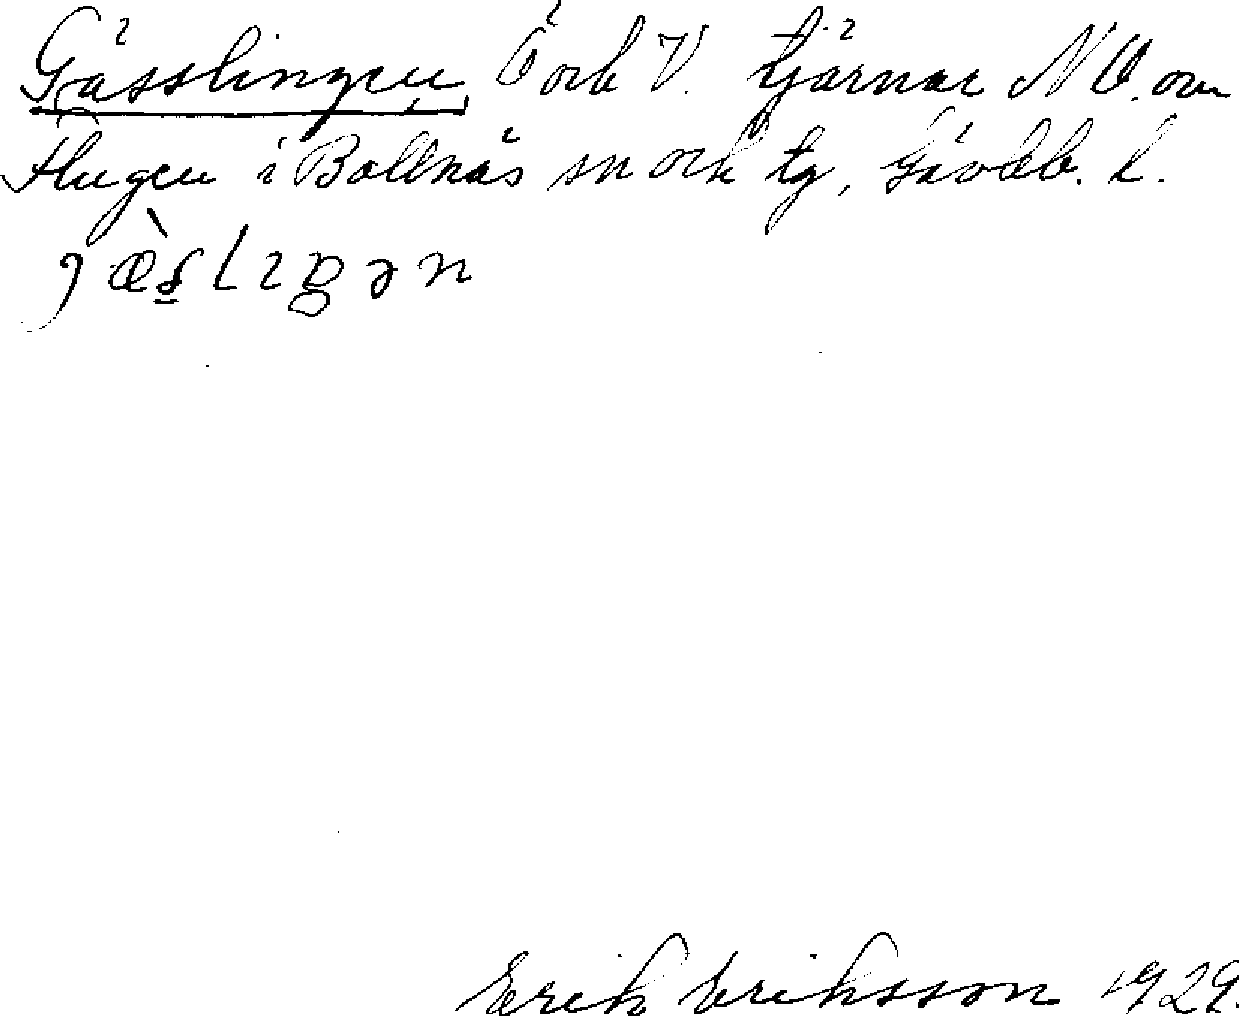 Gässlingen, Ö och V. tjärnar N V. om
Flugen i Bollnäs sn och tg, Gävleb. l.
Erik Eriksson 1929.